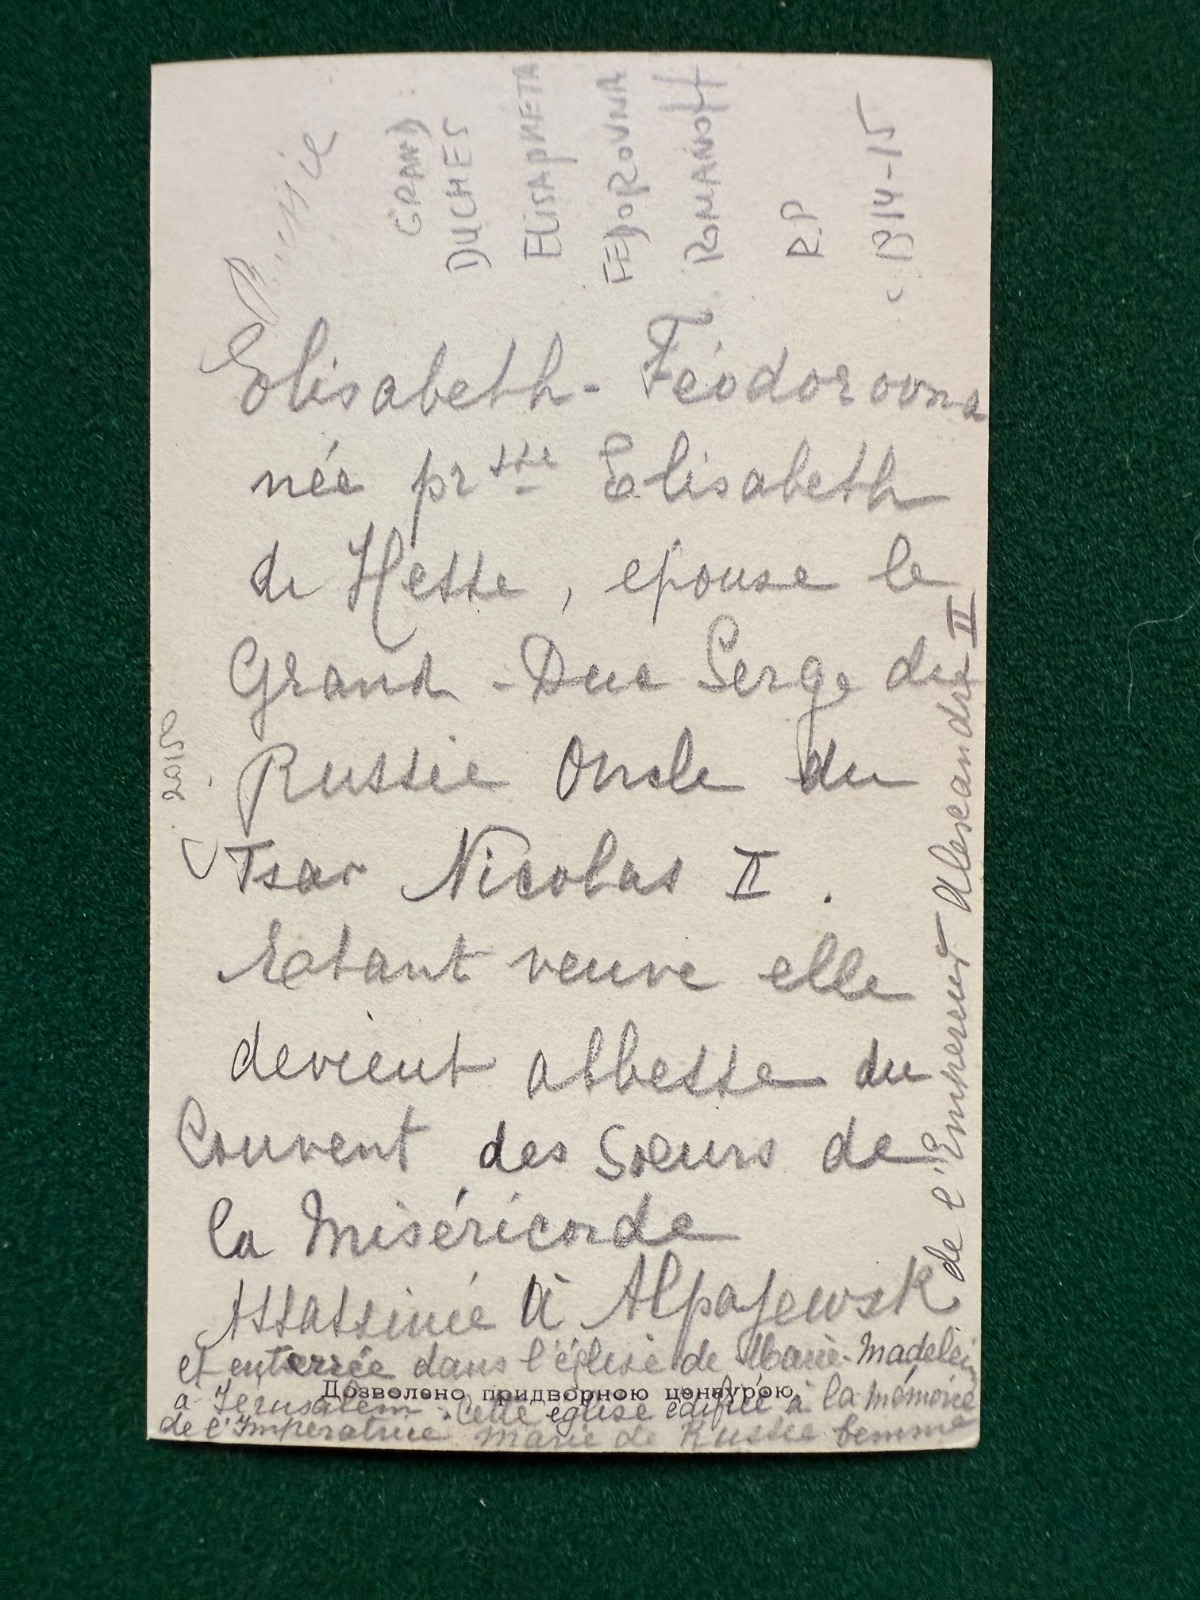 Russie
GRAND
DUCHES
ElisapheTA
FEDOROVNA
ROMANOFF
R.P
1914-15
Elisabeth-Féodorovna
née prsse Elisabeth
de Hesse, epouse le
Grand-Duc Serge de
Russie Oncle du
Tsar Nicolas II.
Etant veuve elle
devient abbesse du
Couvent des Sœurs de
la Miséricorde
Assassinée à Alpajewsk
et enterrée dans l'église de Marie-Madelein
à Jerusalem. Cette eglise édifiée à la mémoire
Дозволено придворною цензурою.
de l'Imperatrice Marie de Russie femme
de l'Empereur Alexandre II
20150